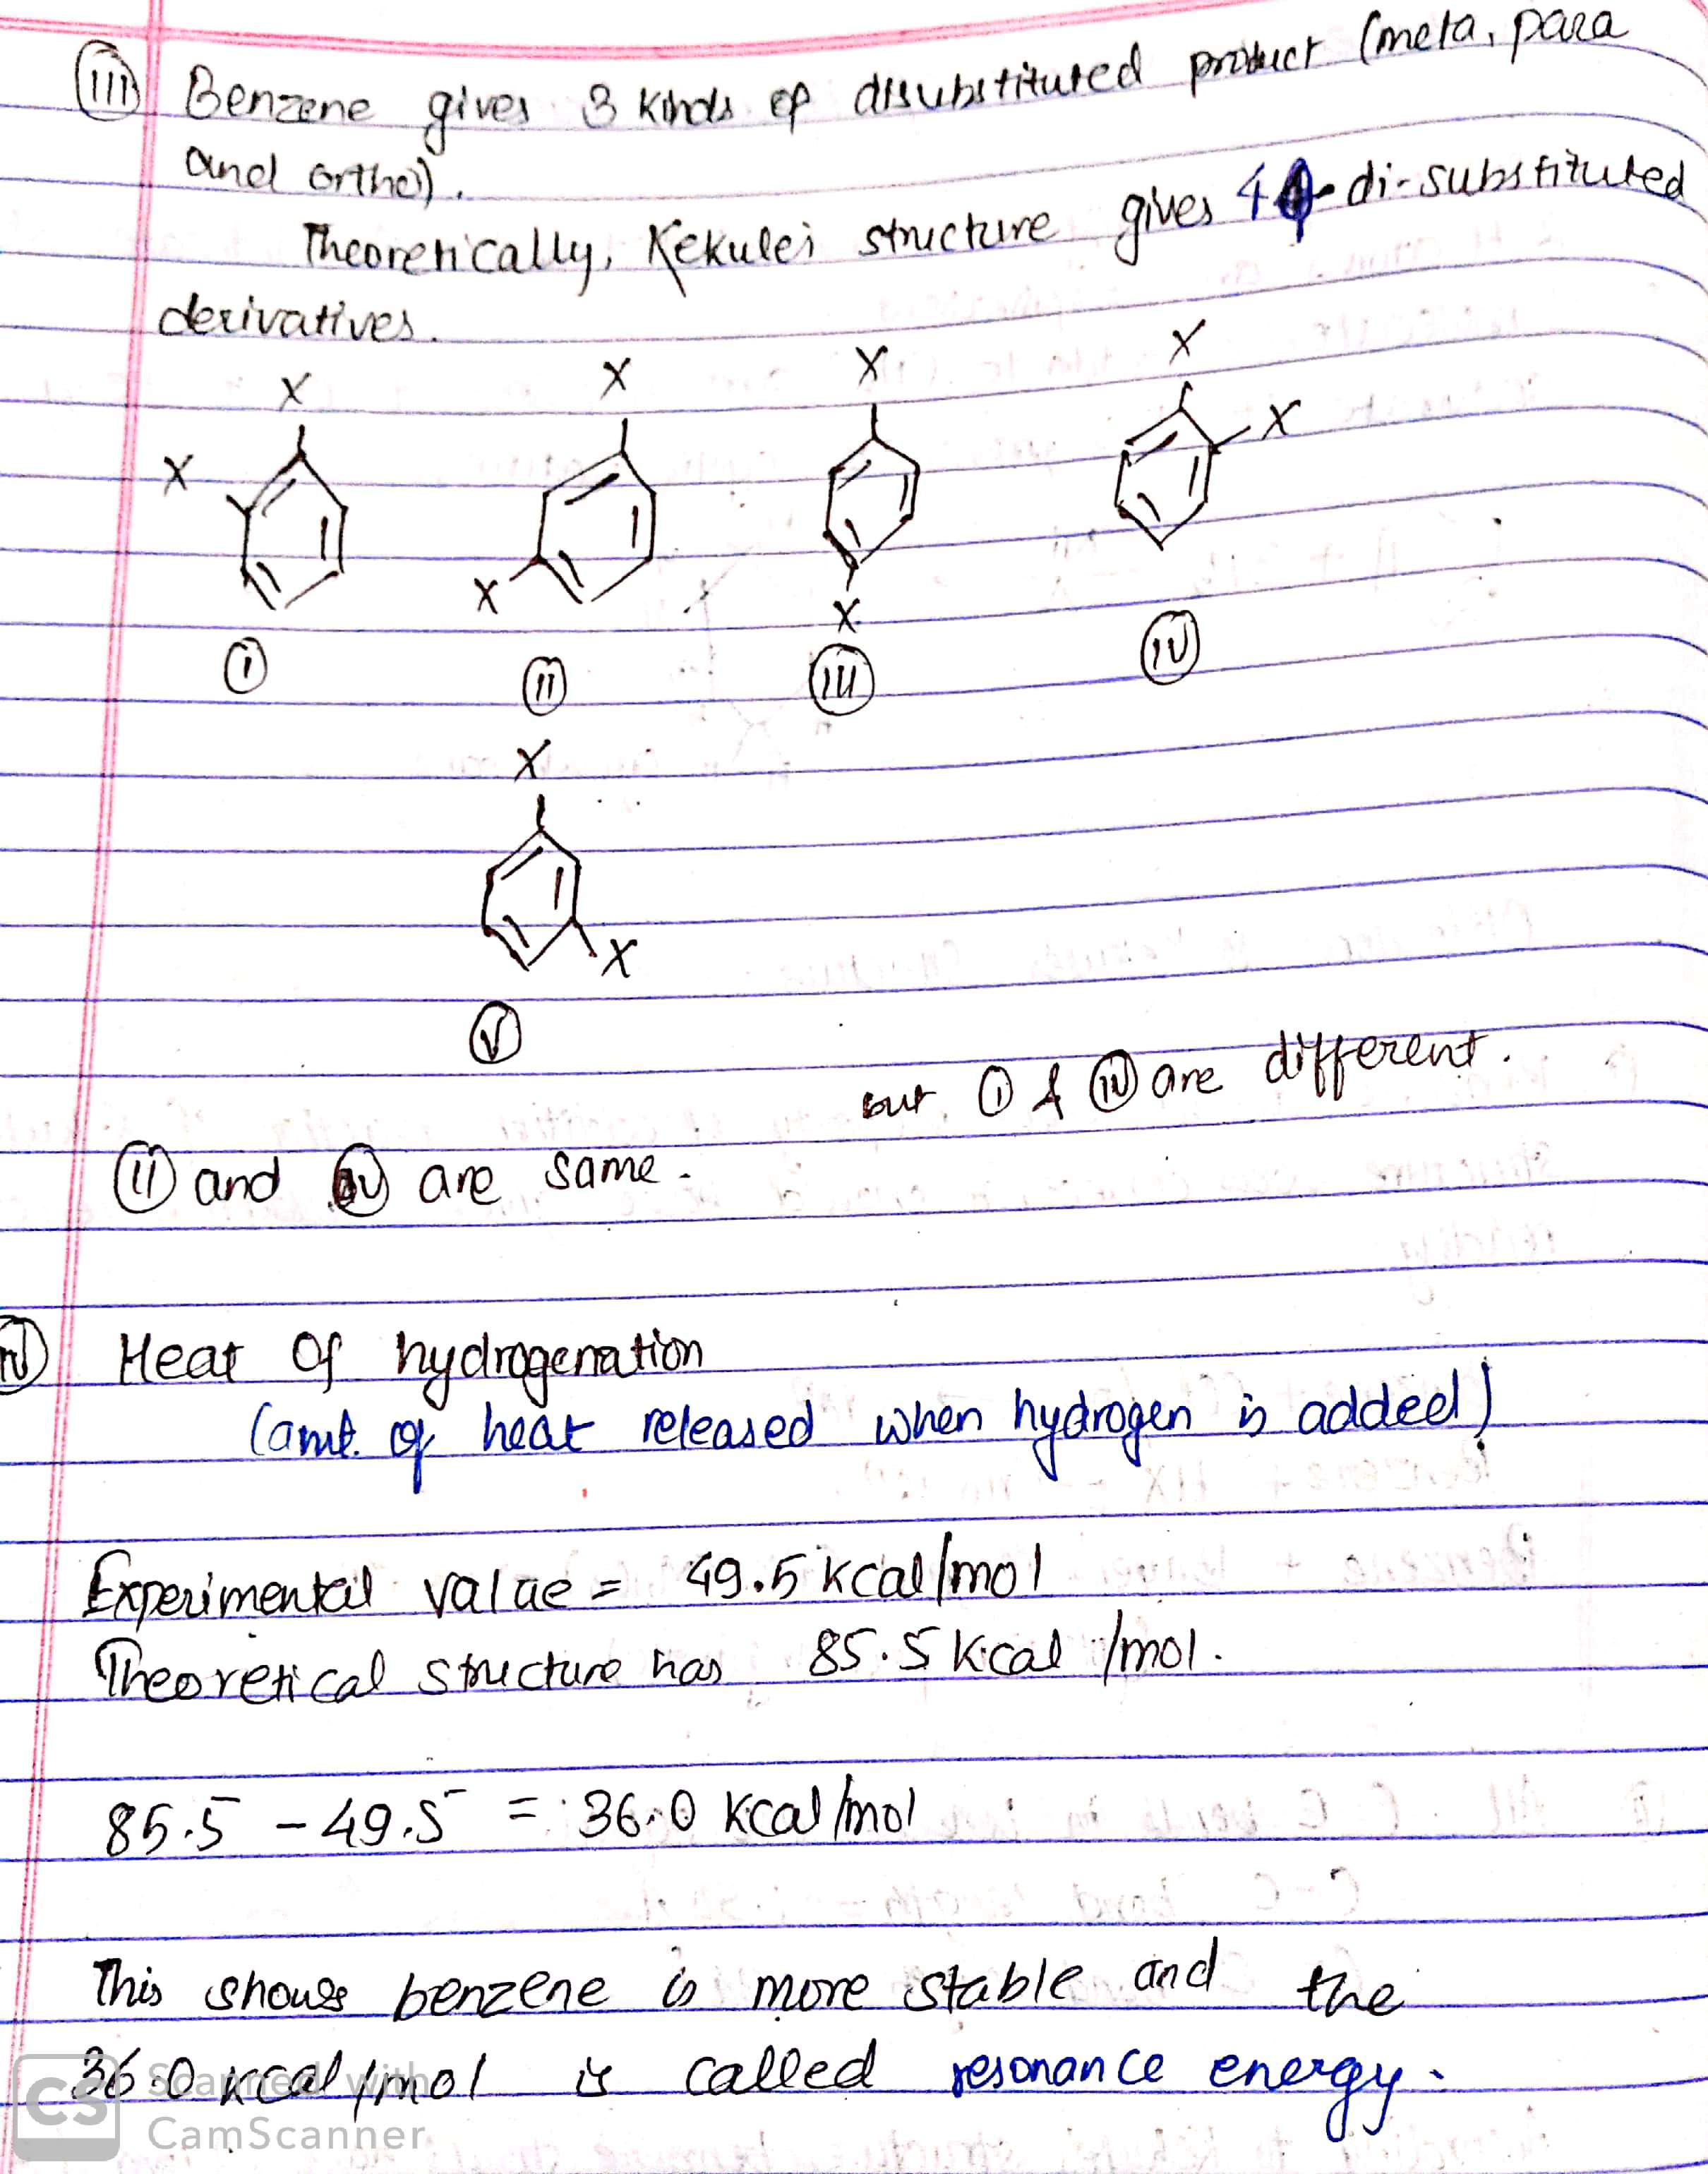 (iii) Benzene gives 3 kinds of disubstituted product (meta, para
and ortho).
Theoretically, Kekule's structure gives 4 di-substituted
derivatives.
X X X X
X X
X X
(i) (ii) (iii) (iv)
X
X
(v)
but (i) & (iv) are different.
(ii) and (v) are same.
(iv) Heat of hydrogenation
(amt. of heat released when hydrogen is added)
Experimental value = 49.5 kcal/mol
Theoretical structure has 85.5 kcal/mol.
85.5 - 49.5 = 36.0 kcal/mol
This shows benzene is more stable and the
36.0 kcal/mol is called resonance energy.
CS Scanned with
CamScanner